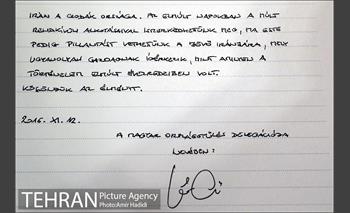 IRÁN A CSODÁK ORSZÁGA. AZ ELMÚLT NAPOKBAN A MÚLT
REMEKÍVŰ ALKOTÁSAIVAL ISMERKEDHETTÜNK MEG, MA ESTE
PEDIG PILLANTÁST VETHETTÜNK A JÖVŐ IRÁNJÁRA, MELY
UGYANOLYAN GAZDAGNAK ÍGÉRKEZIK, MINT AMILYEN A
TÖRTÉNELEM ELMÚLT ÉVEZREDEIBEN VOLT.
KÖSZÖNJÜK AZ ÉLMÉNYT.
2016. XI. 12.
A MAGYAR ORSZÁGGYŰLÉS DELEGÁCIÓJA
NEVÉBEN:
TEHRAN Picture Agency
Photo:Amir Hadidi